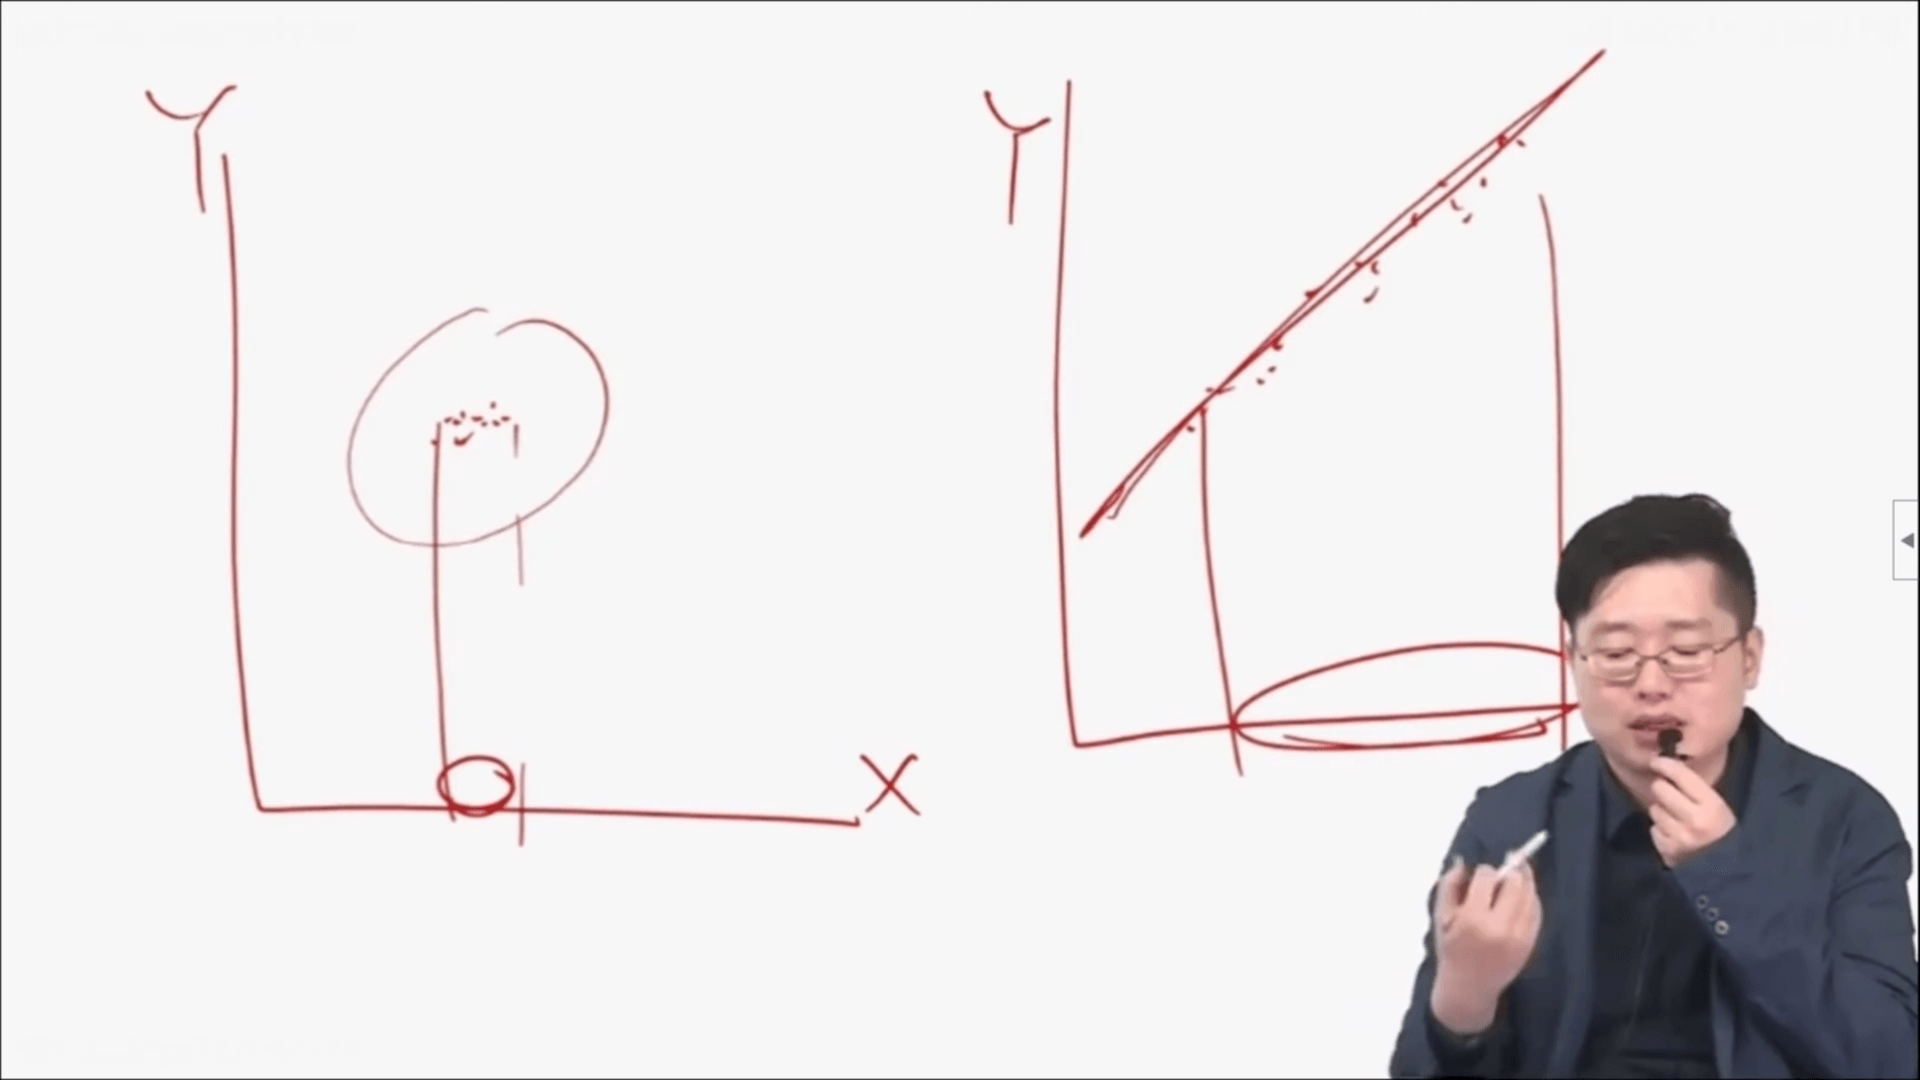 Y
X
Y